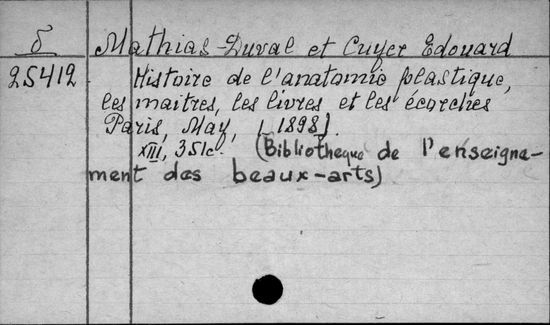 δ Mathias-Duval et Cuyer Edouard
25412 Histoire de l'anatomie plastique,
les maitres, les livres et les écorchés
Paris, May, [1898].
XIII, 351c. (Bibliotheque de l'enseigne-
ment des beaux-arts)